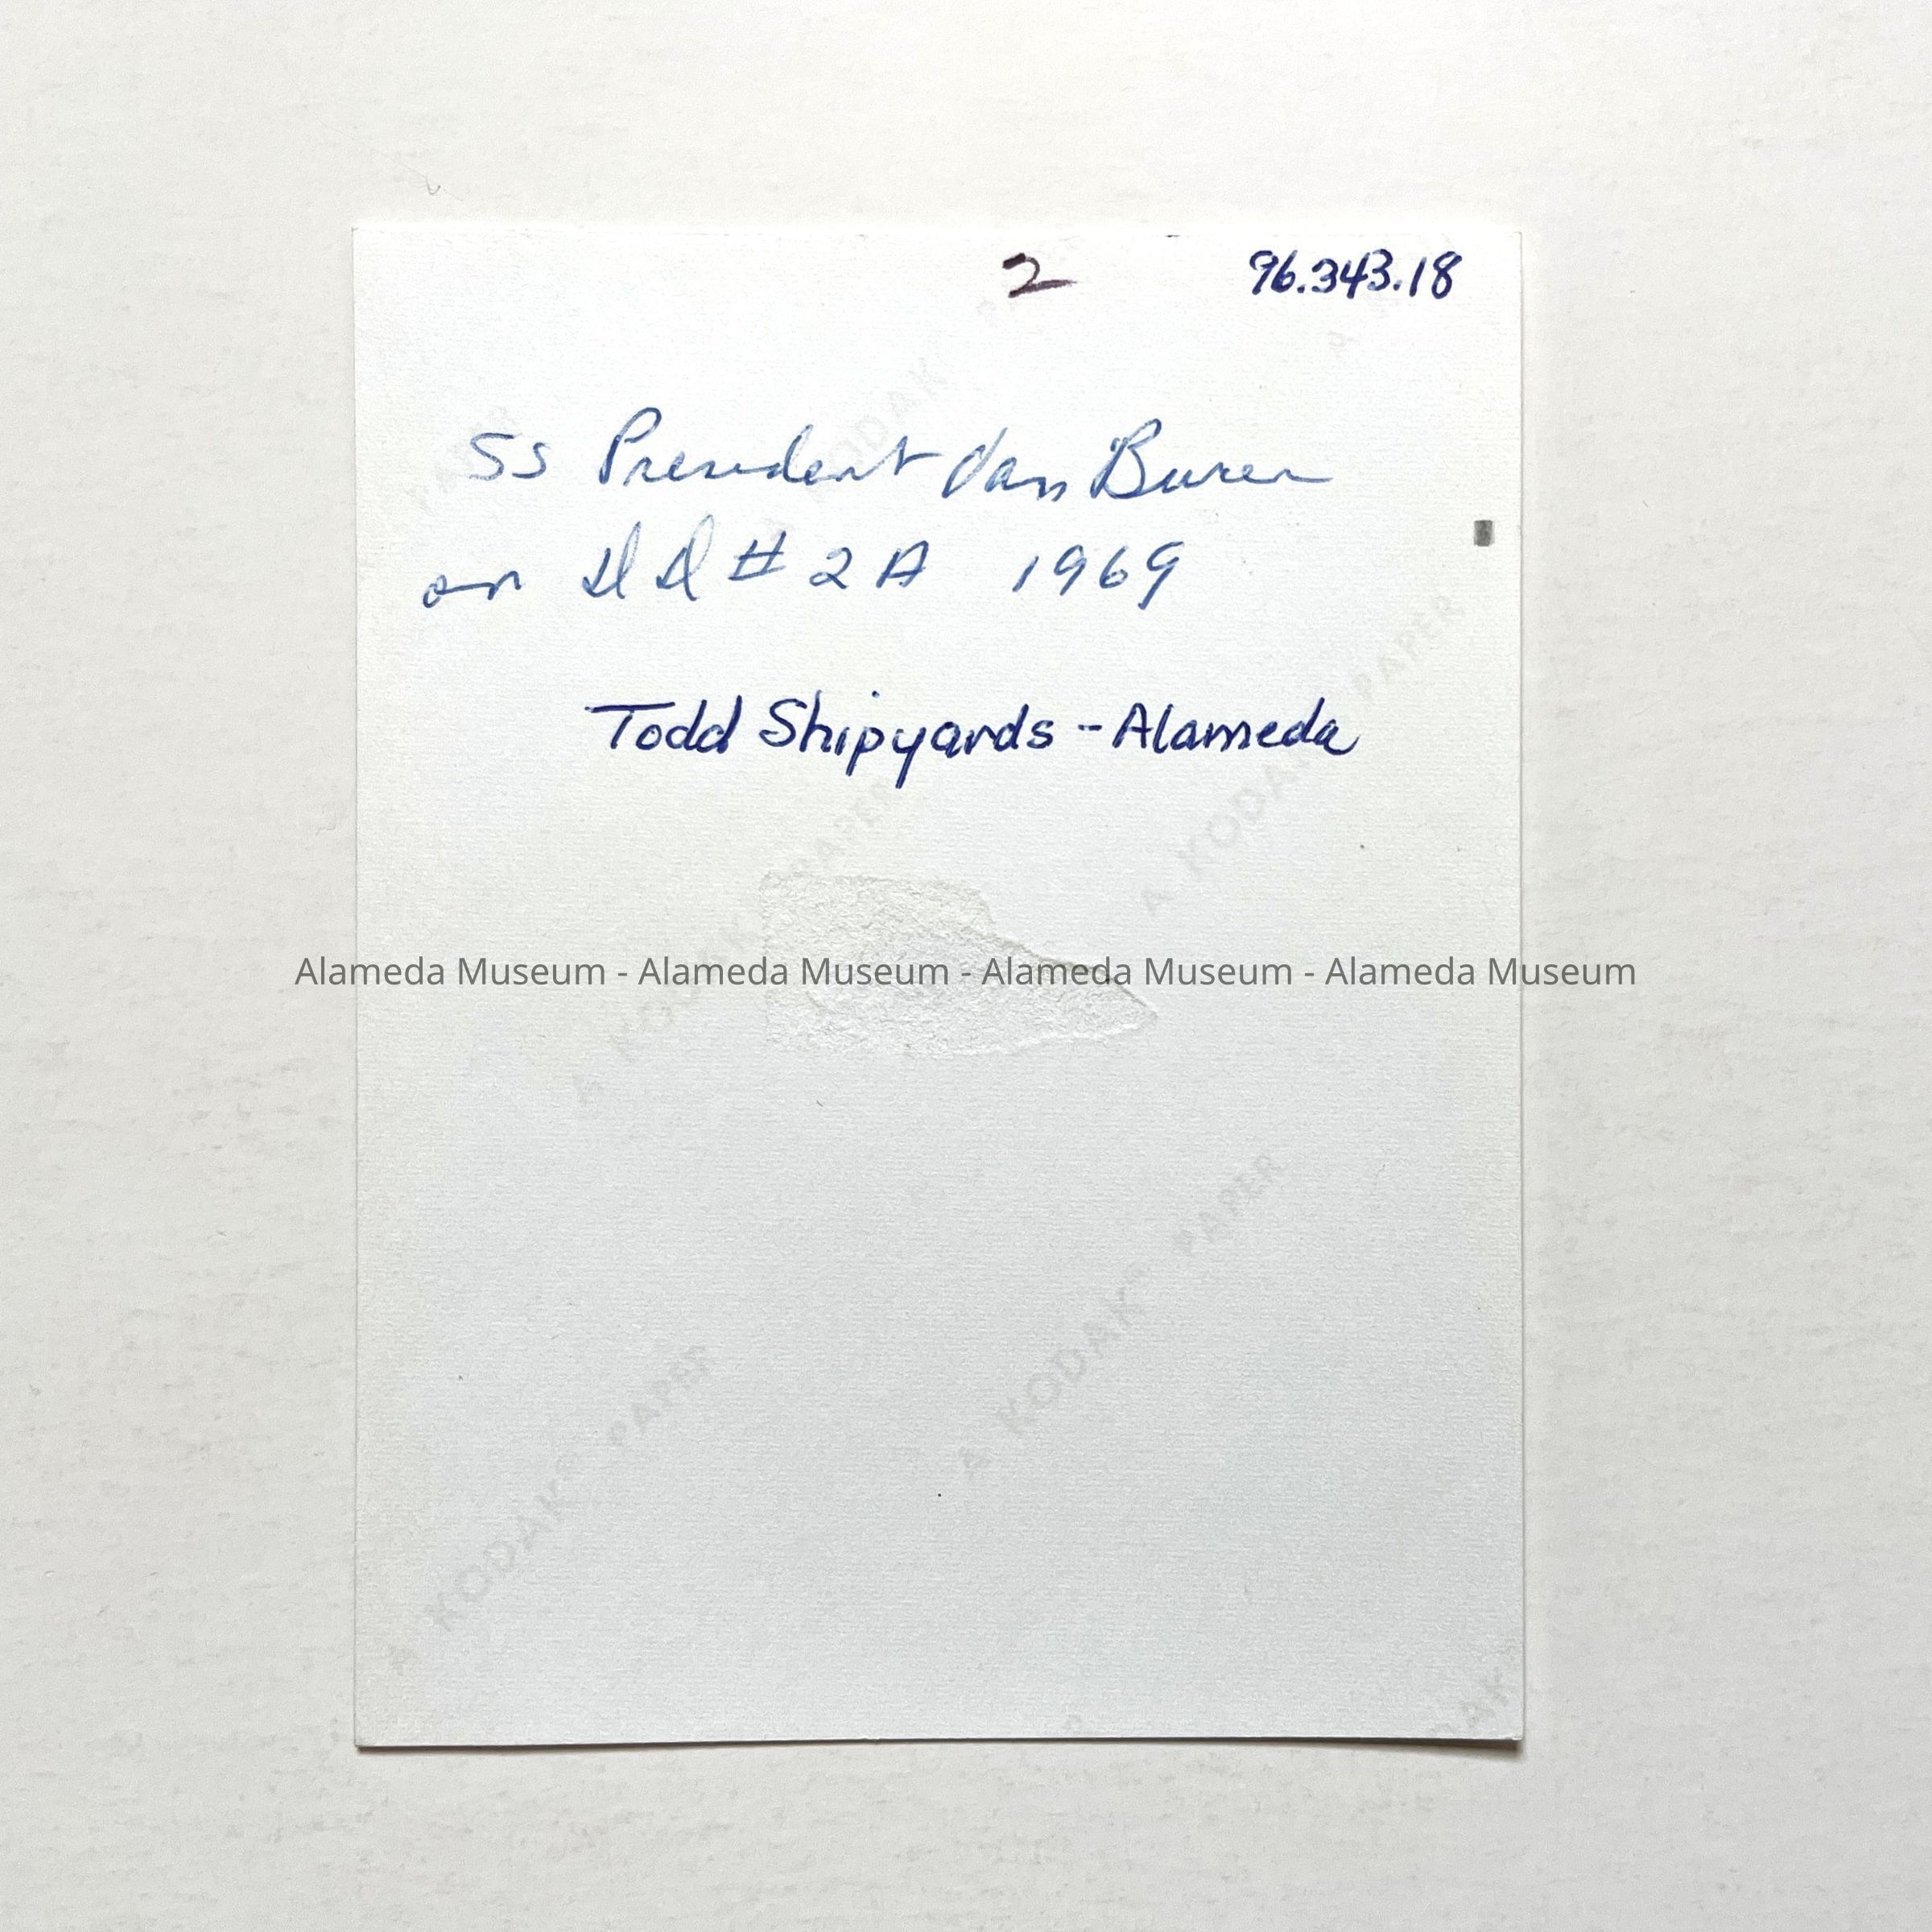 2 96.343.18
SS President Van Buren
on DD # 2A 1969
Todd Shipyards - Alameda
Alameda Museum - Alameda Museum - Alameda Museum - Alameda Museum
A KODAK PAPER
A KODAK PAPER
A KODAK PAPER
A KODAK PAPER